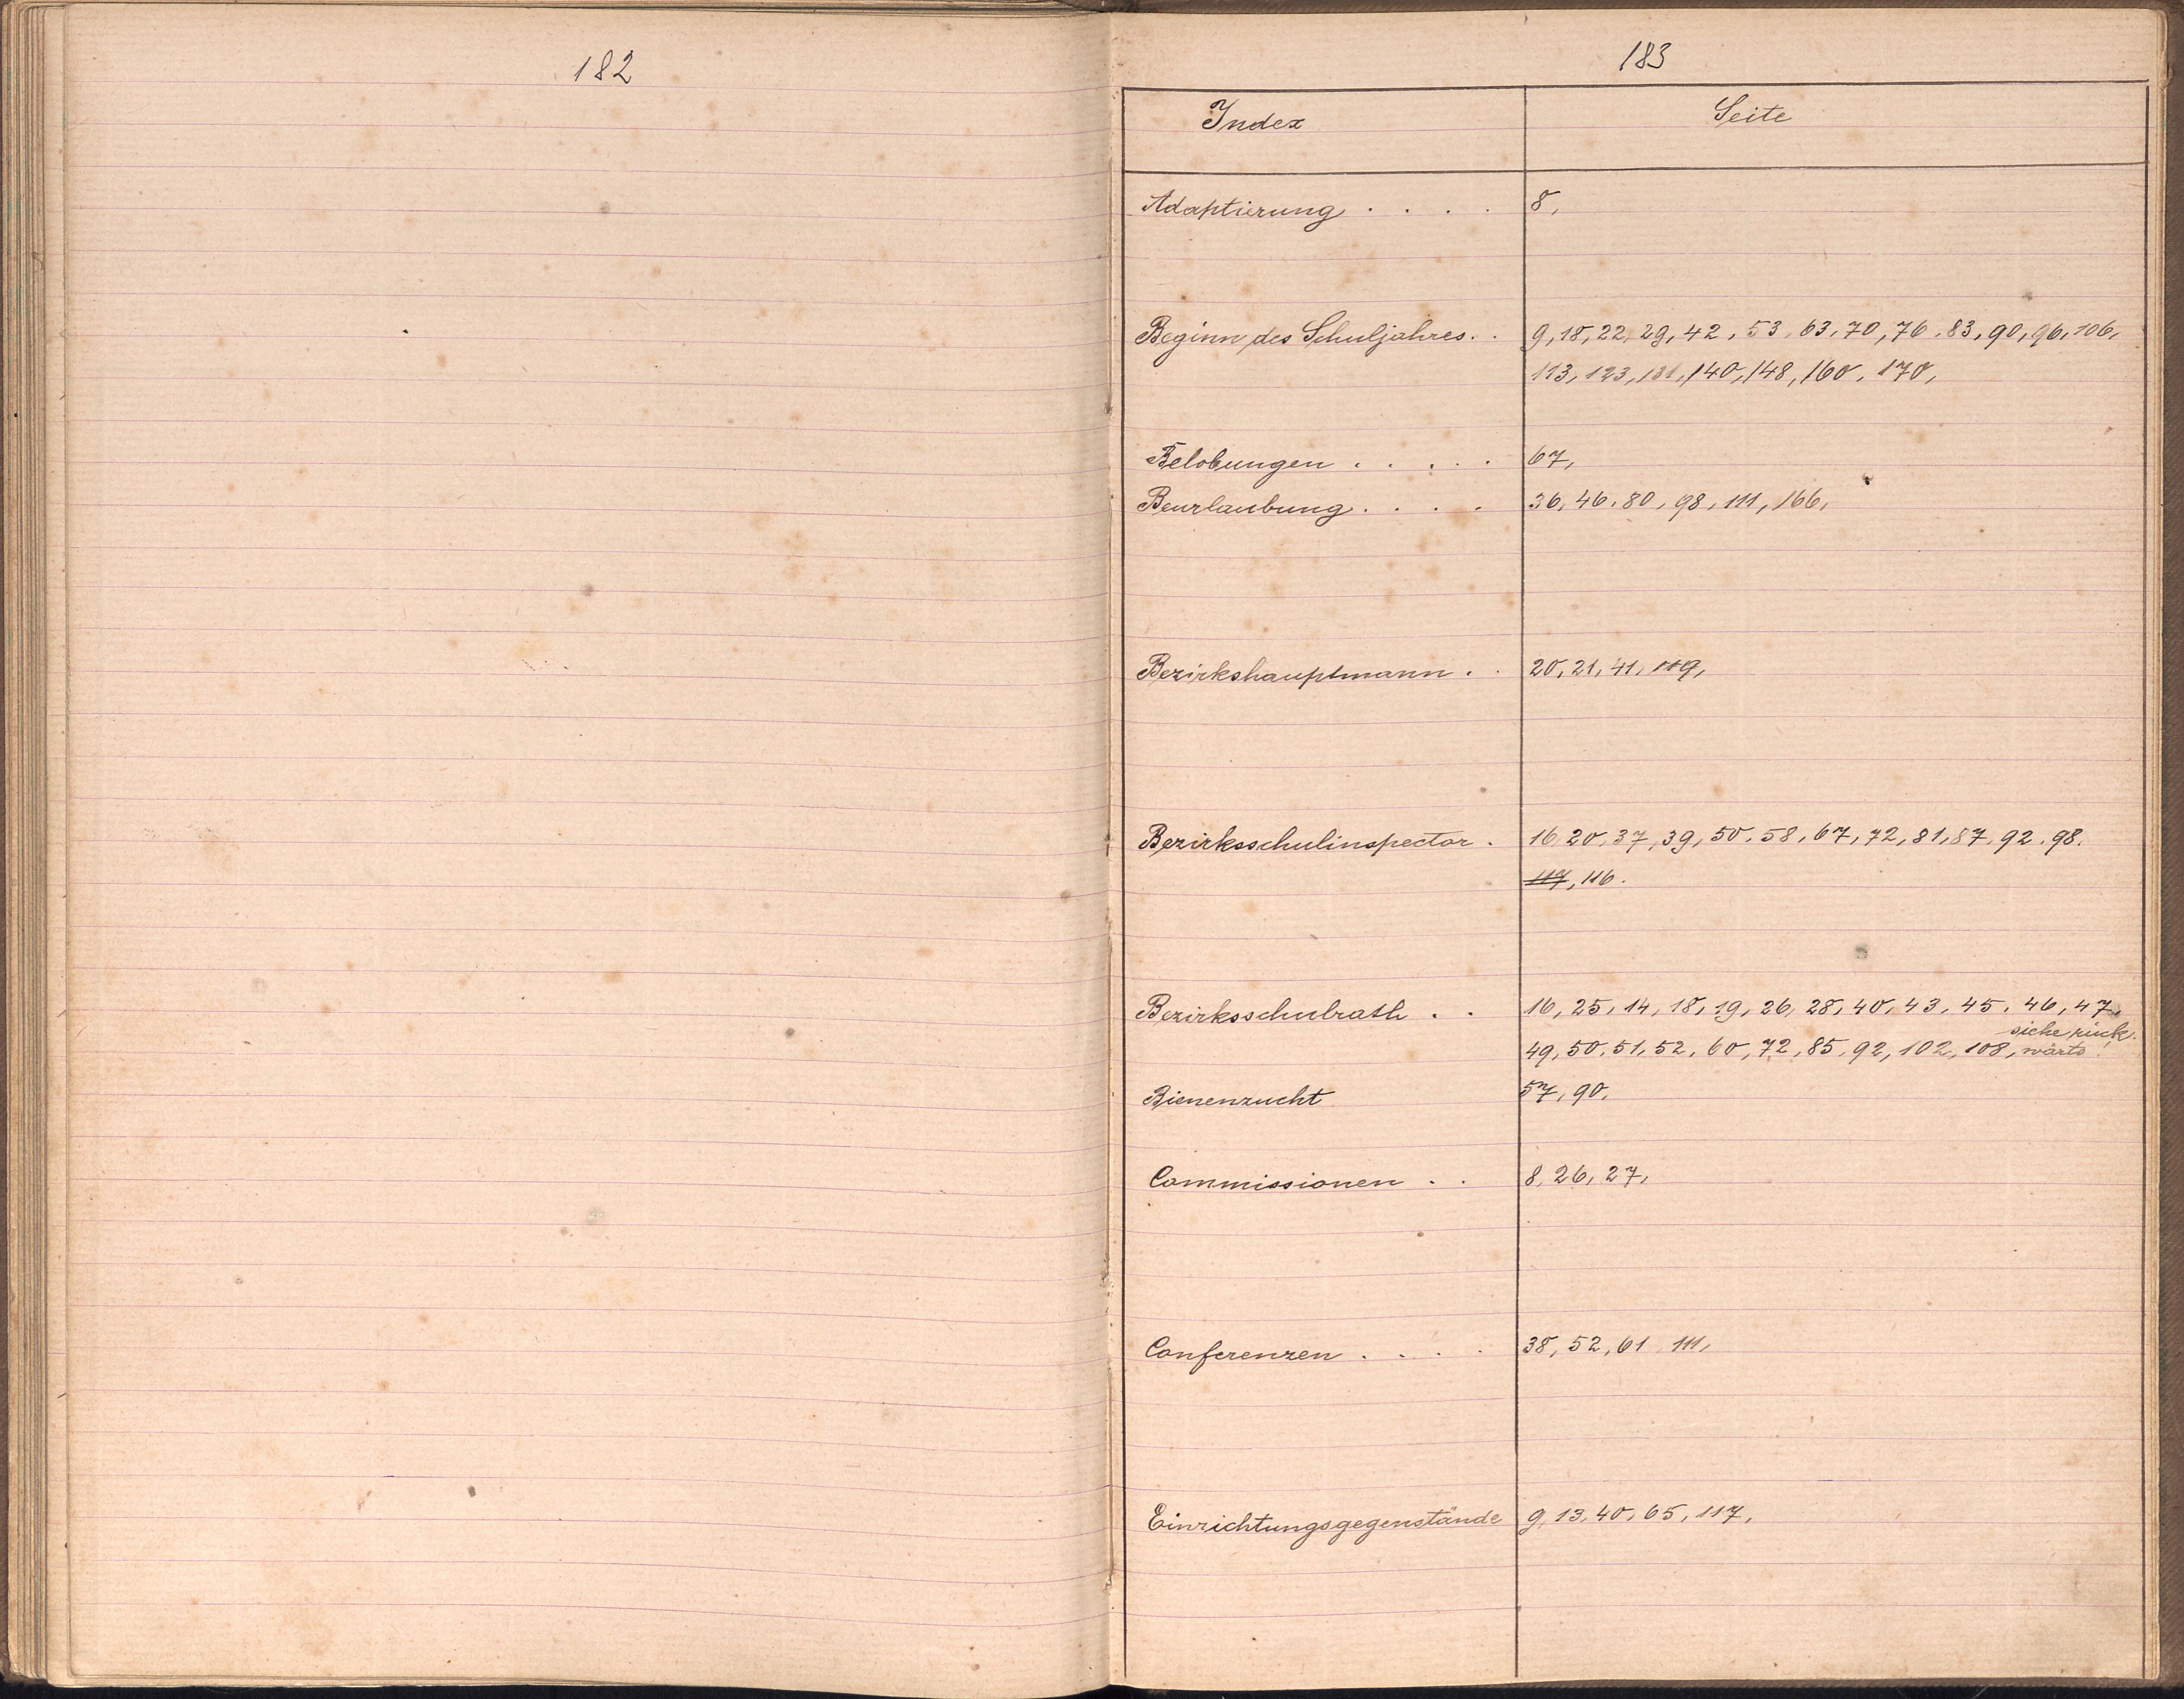 182
183
Index Seite
Adaptierung . . . . 8,
Beginn des Schuljahres. . 9, 18, 22, 29, 42, 53, 63, 70, 76, 83, 90, 96, 106,
113, 123, 131, 140, 148, 160, 170,
Belobungen . . . . . 67,
Beurlaubung . . . . 36, 46, 80, 98, 111, 166,
Bezirkshauptmann . . 20, 21, 41, 119,
Bezirksschulinspector . 16, 20, 37, 39, 50, 58, 67, 72, 81, 87, 92, 98,
117, 116.
Bezirksschulrath . . 16, 25, 14, 18, 19, 26, 28, 40, 43, 45, 46, 47,
siehe rück-
49, 50, 51, 52, 60, 72, 85, 92, 102, 108, wärts!
Bienenzucht 57, 90,
Commissionen . . 8, 26, 27,
Conferenzen . . . . 38, 52, 61, 111,
Einrichtungsgegenstände 9, 13, 40, 65, 117,